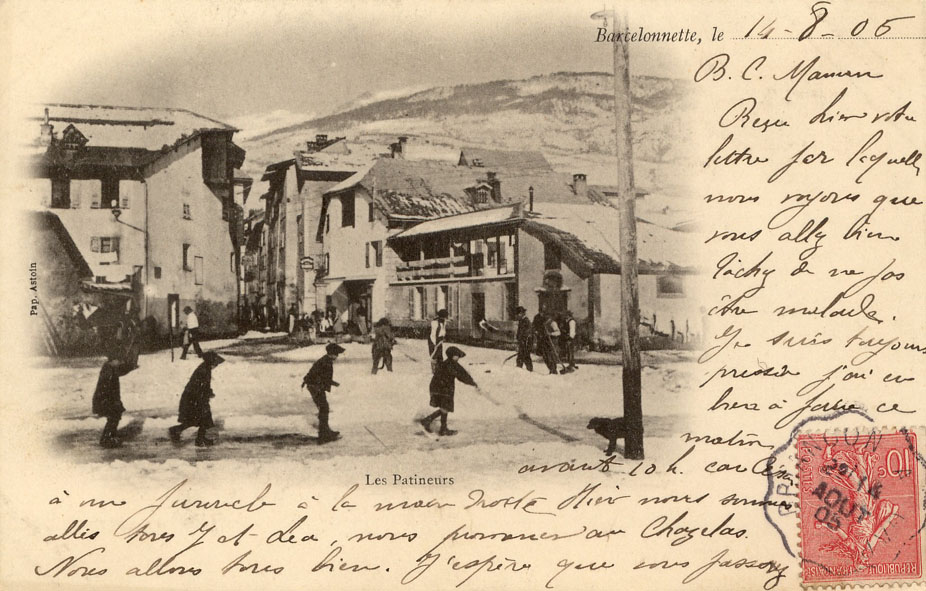 Barcelonnette, le 14-8-05
B. C. Maman
Reçu hier votre
lettre par laquelle
nous voyons que
vous allez bien
Tâchez de ne pas
être malade.
Je suis toujours
pressé j'ai eu
à faire ce
matin
avant 10 h. car
à une furoncle à la main droite Hier nous sommes
allés tous, nous promener au Chazelas.
Nous allons tous bien. J'espère que vous passez
Les Patineurs
Pap. Astoin
14
AOUT
05
10c
POSTES
REPUBLIQUE FRANÇAISE